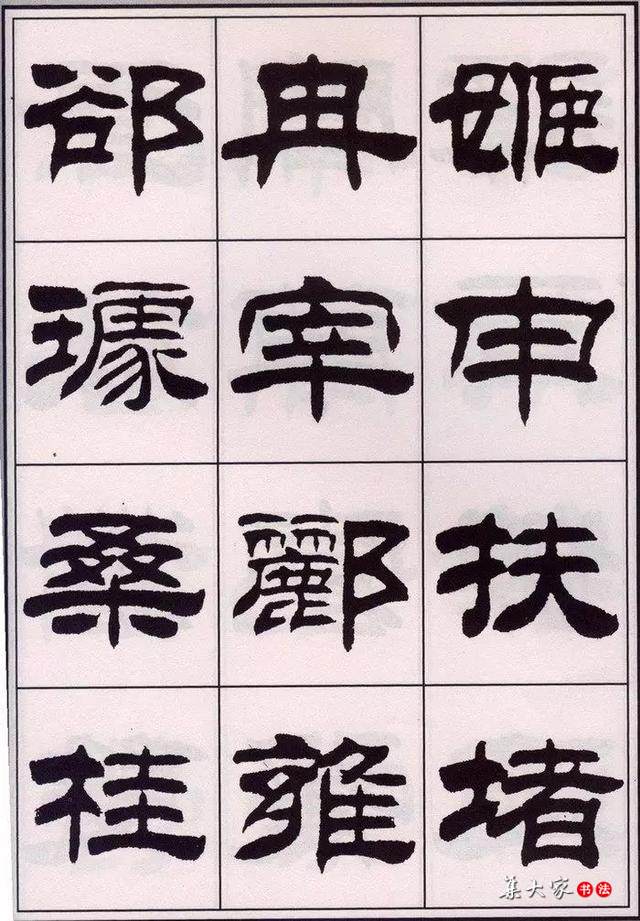 姬申扶堵
冉宰酈雍
郤璩桑桂
集大家书法